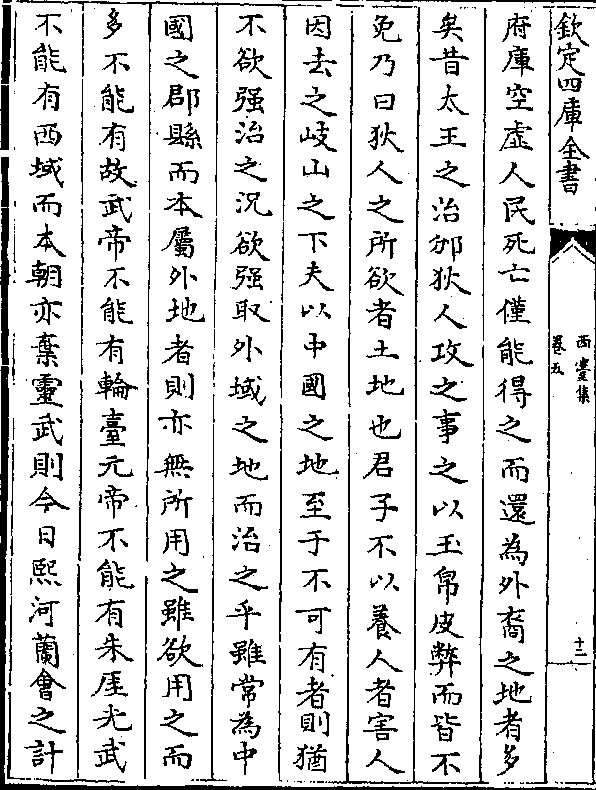 欽定四庫全書
西臺集
卷五
十二
府庫空虛人民死亡僅能得之而還為外裔之地者多
矣昔太王之治邠狄人攻之事之以玉帛皮弊而皆不
免乃曰狄人之所欲者土地也君子不以養人者害人
因去之岐山之下夫以中國之地至于不可有者則猶
不欲强治之況欲强取外域之地而治之乎雖常為中
國之郡縣而本屬外地者則亦無所用之雖欲用之而
多不能有故武帝不能有輪臺元帝不能有朱厓光武
不能有西域而本朝亦棄靈武則今日熙河蘭會之計